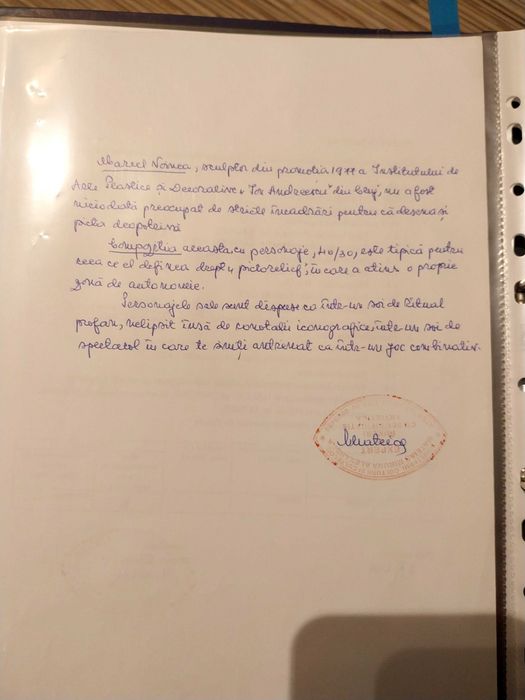 Marcel Nornea, sculptor din promotia 1977 a Institutului de
Arte Plastice și Decorative „Ion Andreescu" din Cluj, nu a fost
niciodată preocupat de stricte încadrări pentru că desena și
picta deopotrivă
Compoziția aceasta, cu personaje, 40/30, este tipică pentru
ceea ce el definea drept „pictorelief", în care a atins o proprie
zonă de autonomie.
Personajele sale sunt dispuse ca într-un soi de ritual
profan, nelipsit însă de conotații iconografice, într-un soi de
spectacol în care te simți antrenat ca într-un joc combinativ.
EXPERT